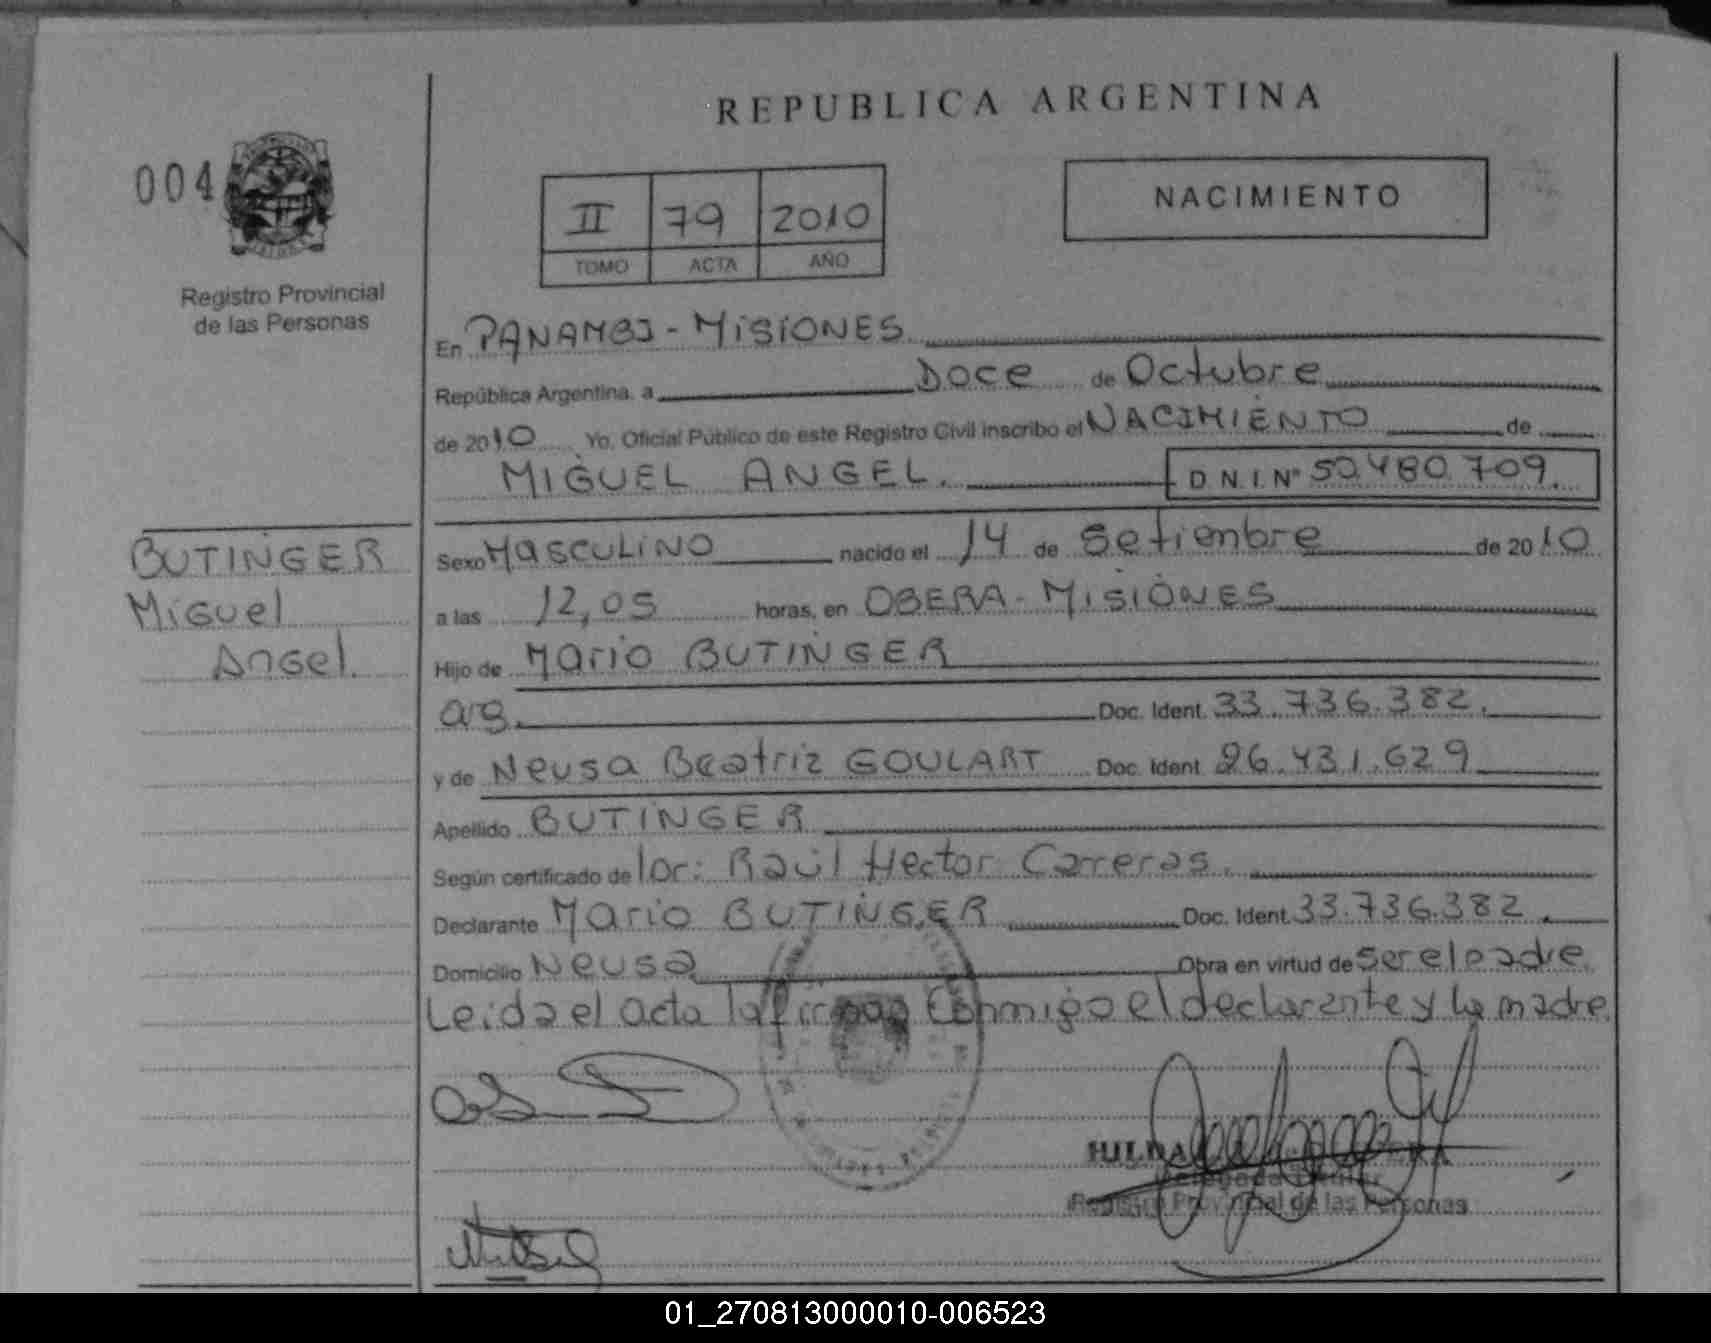 REPUBLICA ARGENTINA
004
NACIMIENTO
II 79 2010
TOMO ACTA AÑO
Registro Provincial
de las Personas
En PANAMBI - MISIONES
República Argentina, a Doce de Octubre
de 2010 Yo, Oficial Público de este Registro Civil inscribo el NACIMIENTO de
MIGUEL ANGEL. D.N.I. Nº 50.480.709.
BUTINGER
Miguel
Angel.
Sexo MASCULINO nacido el 14 de Setiembre de 2010
a las 12,05 horas, en OBERA - MISIONES
Hijo de Mario BUTINGER
arg. Doc. Ident. 33.736.382.
y de Neusa Beatriz GOULART Doc. Ident. 26.431.629
Apellido BUTINGER
Según certificado de Dr: Raúl Hector Carreras.
Declarante Mario BUTINGER Doc. Ident. 33.736.382.
Domicilio Neusa Obra en virtud de ser el padre.
Leida el acta la firman Conmigo el declarante y la madre.
HILDA
Delegada Titular
Registro Provincial de las Personas
01_270813000010-006523